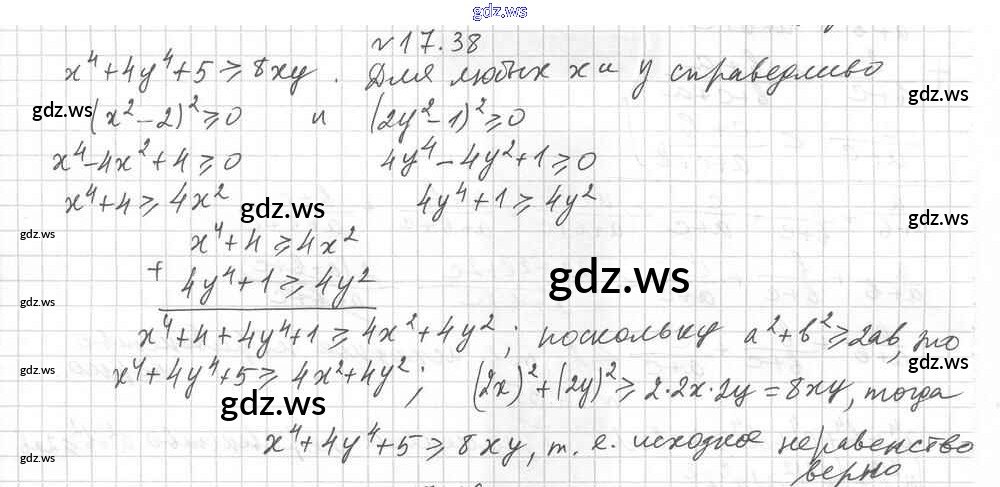 gdz.ws
№ 17.38
x⁴+4y⁴+5 ≥ 8xy. Для любых x и y справедливо
gdz.ws (x²-2)² ≥ 0 и (2y²-1)² ≥ 0 gdz.ws
x⁴-4x²+4 ≥ 0 4y⁴-4y²+1 ≥ 0
x⁴+4 ≥ 4x² 4y⁴+1 ≥ 4y²
gdz.ws gdz.ws
gdz.ws x⁴+4 ≥ 4x²
+ 4y⁴+1 ≥ 4y² gdz.ws
gdz.ws
x⁴+4+4y⁴+1 ≥ 4x²+4y²; поскольку a²+b² ≥ 2ab, то
gdz.ws gdz.ws
x⁴+4y⁴+5 ≥ 4x²+4y²; (2x)²+(2y)² ≥ 2·2x·2y = 8xy, тогда
gdz.ws
gdz.ws x⁴+4y⁴+5 ≥ 8xy, т. е. исходное неравенство
верно